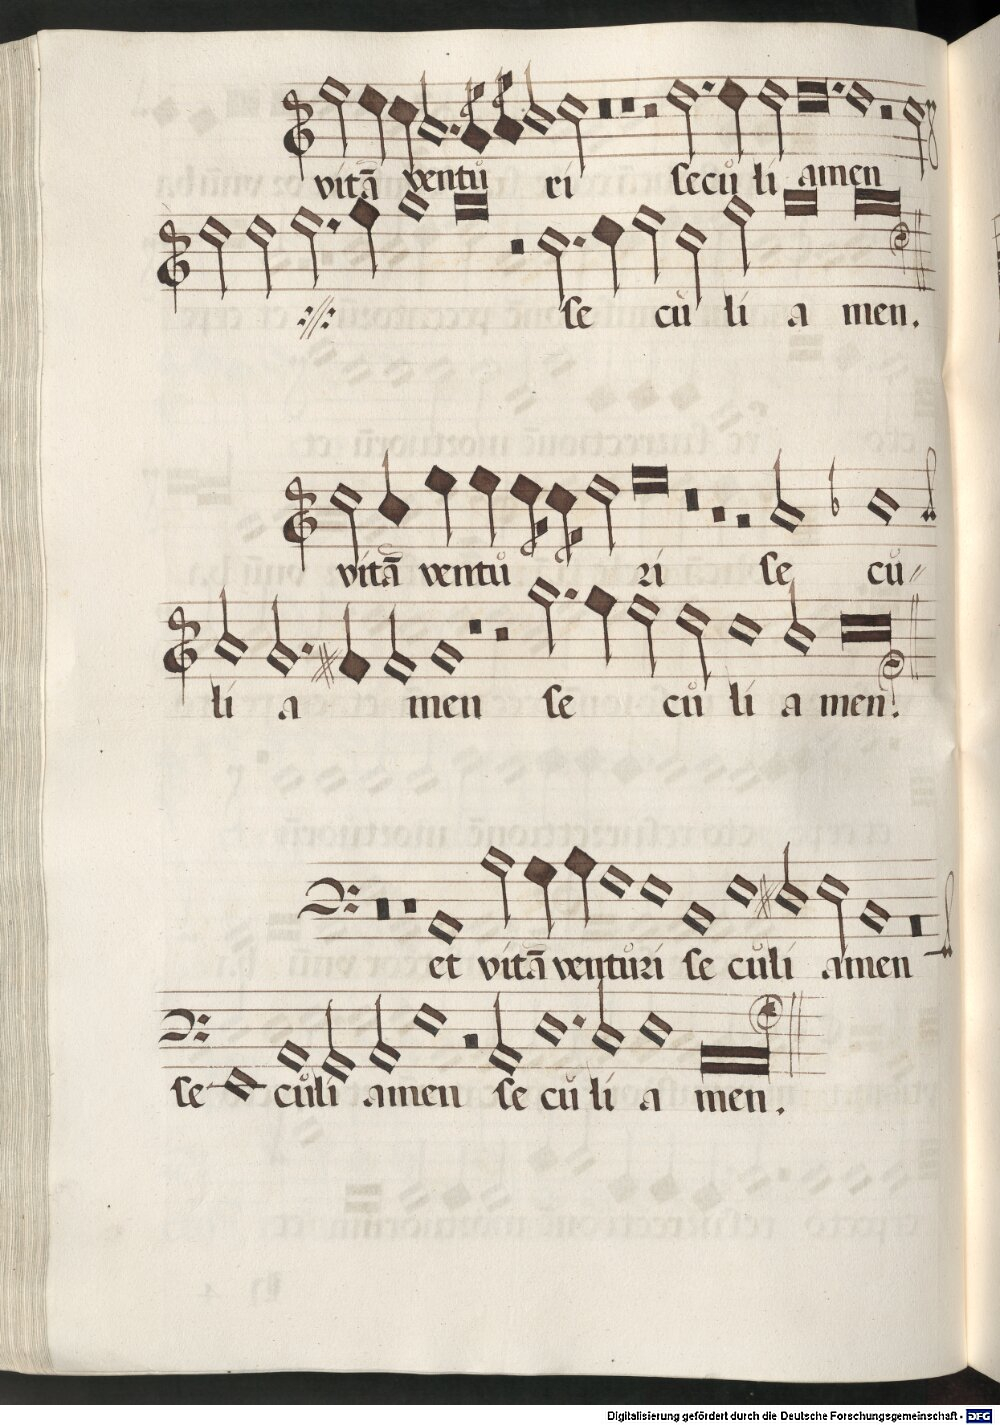 vitā ventů ri seců li amen
se ců li a men.
vitā ventů ri se ců〃
li a men se ců li a men.
et vitā ventůri se ců li amen
se ců li amen se ců li a men.
Digitalisierung gefördert durch die Deutsche Forschungsgemeinschaft - DFG